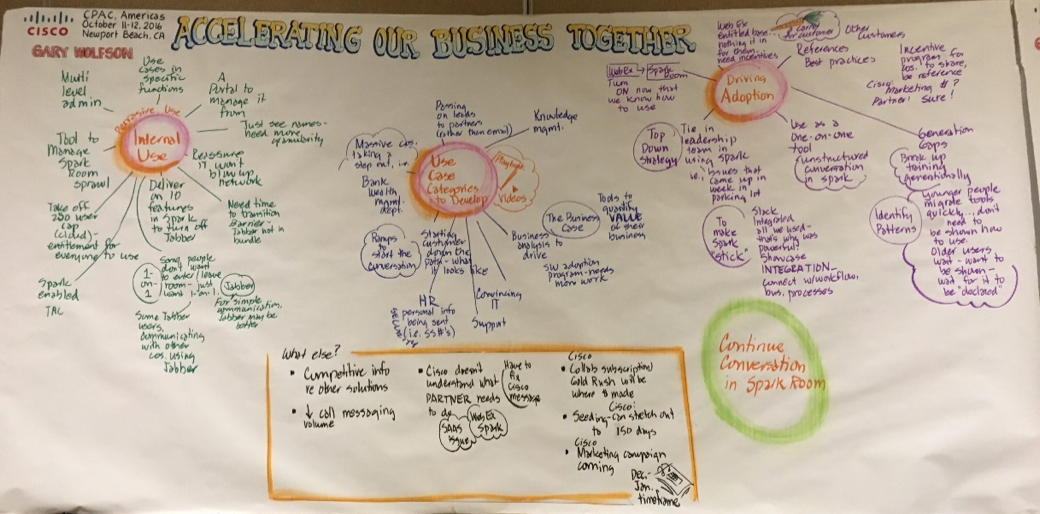 CISCO
CPAC, Americas
October 11-12, 2016
Newport Beach, CA
GARY WOLFSON
ACCELERATING OUR BUSINESS TOGETHER
Pervasive Use
Internal
Use
Multi
level
admin
Use
cases in
specific
functions
A
Portal to
manage it
from
Just see names-
need more
granularity
Reassure
IT won't
blow up
network
Need time
to transition
Barrier-
Jabber not in
bundle
Deliver
on 10
features
in Spark
to turn off
Jabber
Tool to
Manage
Spark
Room
sprawl
Take off
200 user
cap
(cloud)-
entitlement for
everyone to use
Spark
enabled
TAC
1-
on-
1
Some people
don't want
to enter/leave
room - just
want 1-on-1
Jabber
For simple
communication,
Jabber may be
better
Some Jabber
users,
communicating
with other
cos. using
Jabber
Use
Case
Categories
to Develop
Playlist
Videos
Passing
on leads
to partners
(rather than email)
Knowledge
mgmt.
Massive cos.
taking a
step out, i.e.
Bank
wealth
mgmt.
dept.
Ramps
to start
the
conversation
Starting
customer
down the
path - what
it looks like
HR
personal info
being sent
(i.e. SS#'s)
Support
Convincing
IT
Business
analysis to
drive
The Business
Case
Tools to
quantify
VALUE
of their
business
SW adoption
program-needs
more work
Driving
Adoption
Web Ex
entitled base...
nothing in it
for them...
need incentives
Carrot
for customer
Other
Customers
References
Best practices
Incentive
program for
cos. to share,
be reference
Cisco
Marketing $?
Partner? Sure!
WebEx → Spark Room
Turn
ON now that
we know how
to use
Top
Down
Strategy
Tie in
leadership
team in
using Spark
i.e., issues that
came up in
week in
parking lot
Use as a
one-on-one
tool
(unstructured
conversation
in spark)
Generation
Gaps
Break up
training
generationally
Identify
Patterns
Younger people
migrate tools
quickly...don't
need to
be shown how
to use.
Older users
wait - want to
be shown -
wait for it to
be "declared"
To
make
Spark
"stick"
Slack
Integrated
all we used-
that's why was
powerful
Showcase
INTEGRATION-
connect w/workflow,
bus. processes
Continue
Conversation
in Spark Room
What else?
• Competitive info
re other solutions
• ↓ call messaging
volume
• Cisco doesn't
understand what
PARTNER needs
to do
Have to
fix
Cisco
message
SAAS
issue
WebEx
Spark
Cisco
• Collab subscription/
Gold Rush will be
where $ made
Cisco:
• Seeding-can stretch out
to 150 days
Cisco
• Marketing campaign
coming
Dec.-
Jan.
timeframe